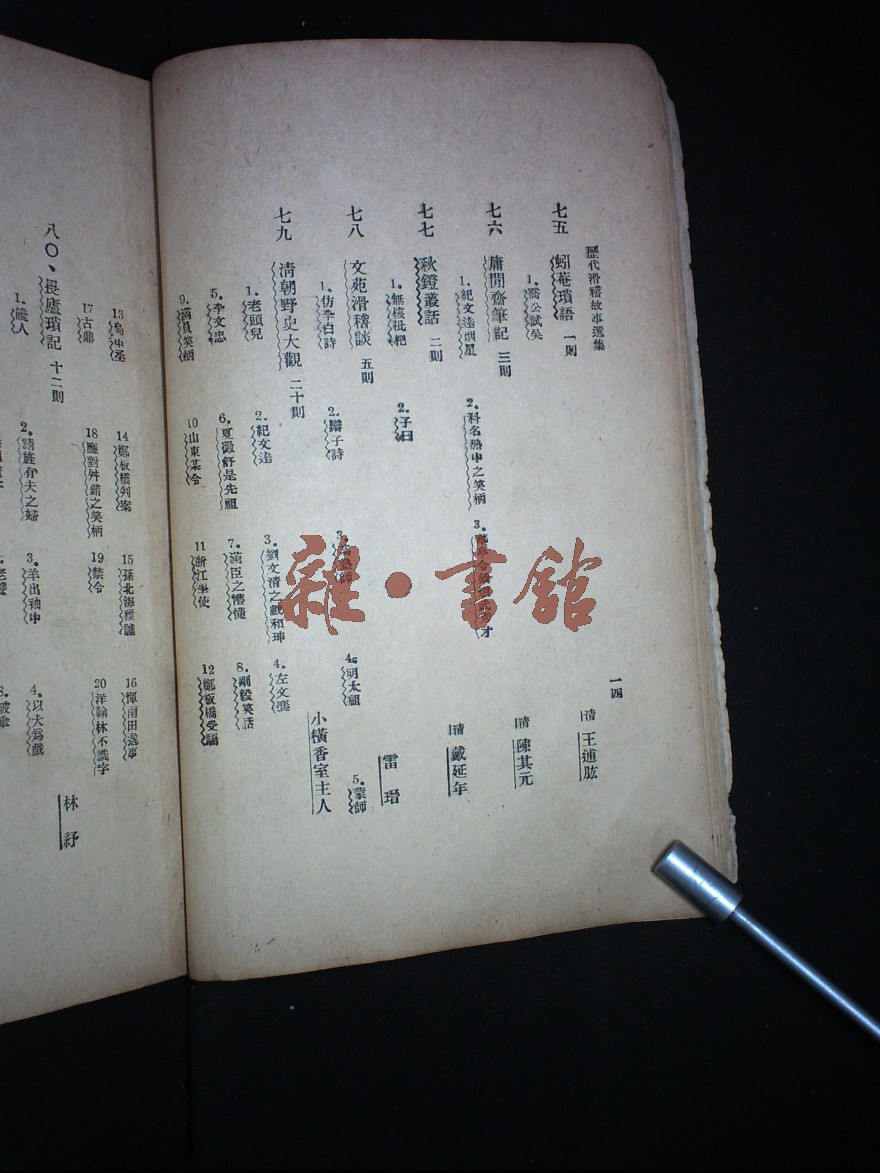 歷代滑稽故事選集
一四
七五 蚓菴瑣語 一則 清 王逋肱
1.喬公試吳
七六 庸閒齋筆記 三則 清 陳其元
1.紀文達烟星 2.科名熱中之笑柄 3.
七七 秋鐙叢話 二則 清 戴延年
1.無核枇杷 2.子曰
七八 文苑滑稽談 五則 雷瑨
1.仿李白詩 2.辮子詩 3. 4.明太祖 5.蒙師
七九 清朝野史大觀 二十則 小橫香室主人
1.老頭兒 2.紀文達 3.劉文清之戲和珅 4.左文襄
5.李文忠 6.夏徵舒是先祖 7.滿臣之懵懂 8.剛毅笑話
9.滿員笑柄 10山東某令 11浙江學使 12鄭板橋受騙
13烏中丞 14鄭板橋判案 15孫北海雅謔 16惲南田逸事
17古鼎 18應對舛錯之笑柄 19禁令 20洋翰林不識字
八〇、畏廬瑣記 十二則 林紓
1.饞人 2.請旌有夫之婦 3.羊出袖中 4.以犬爲戲
雜·書館